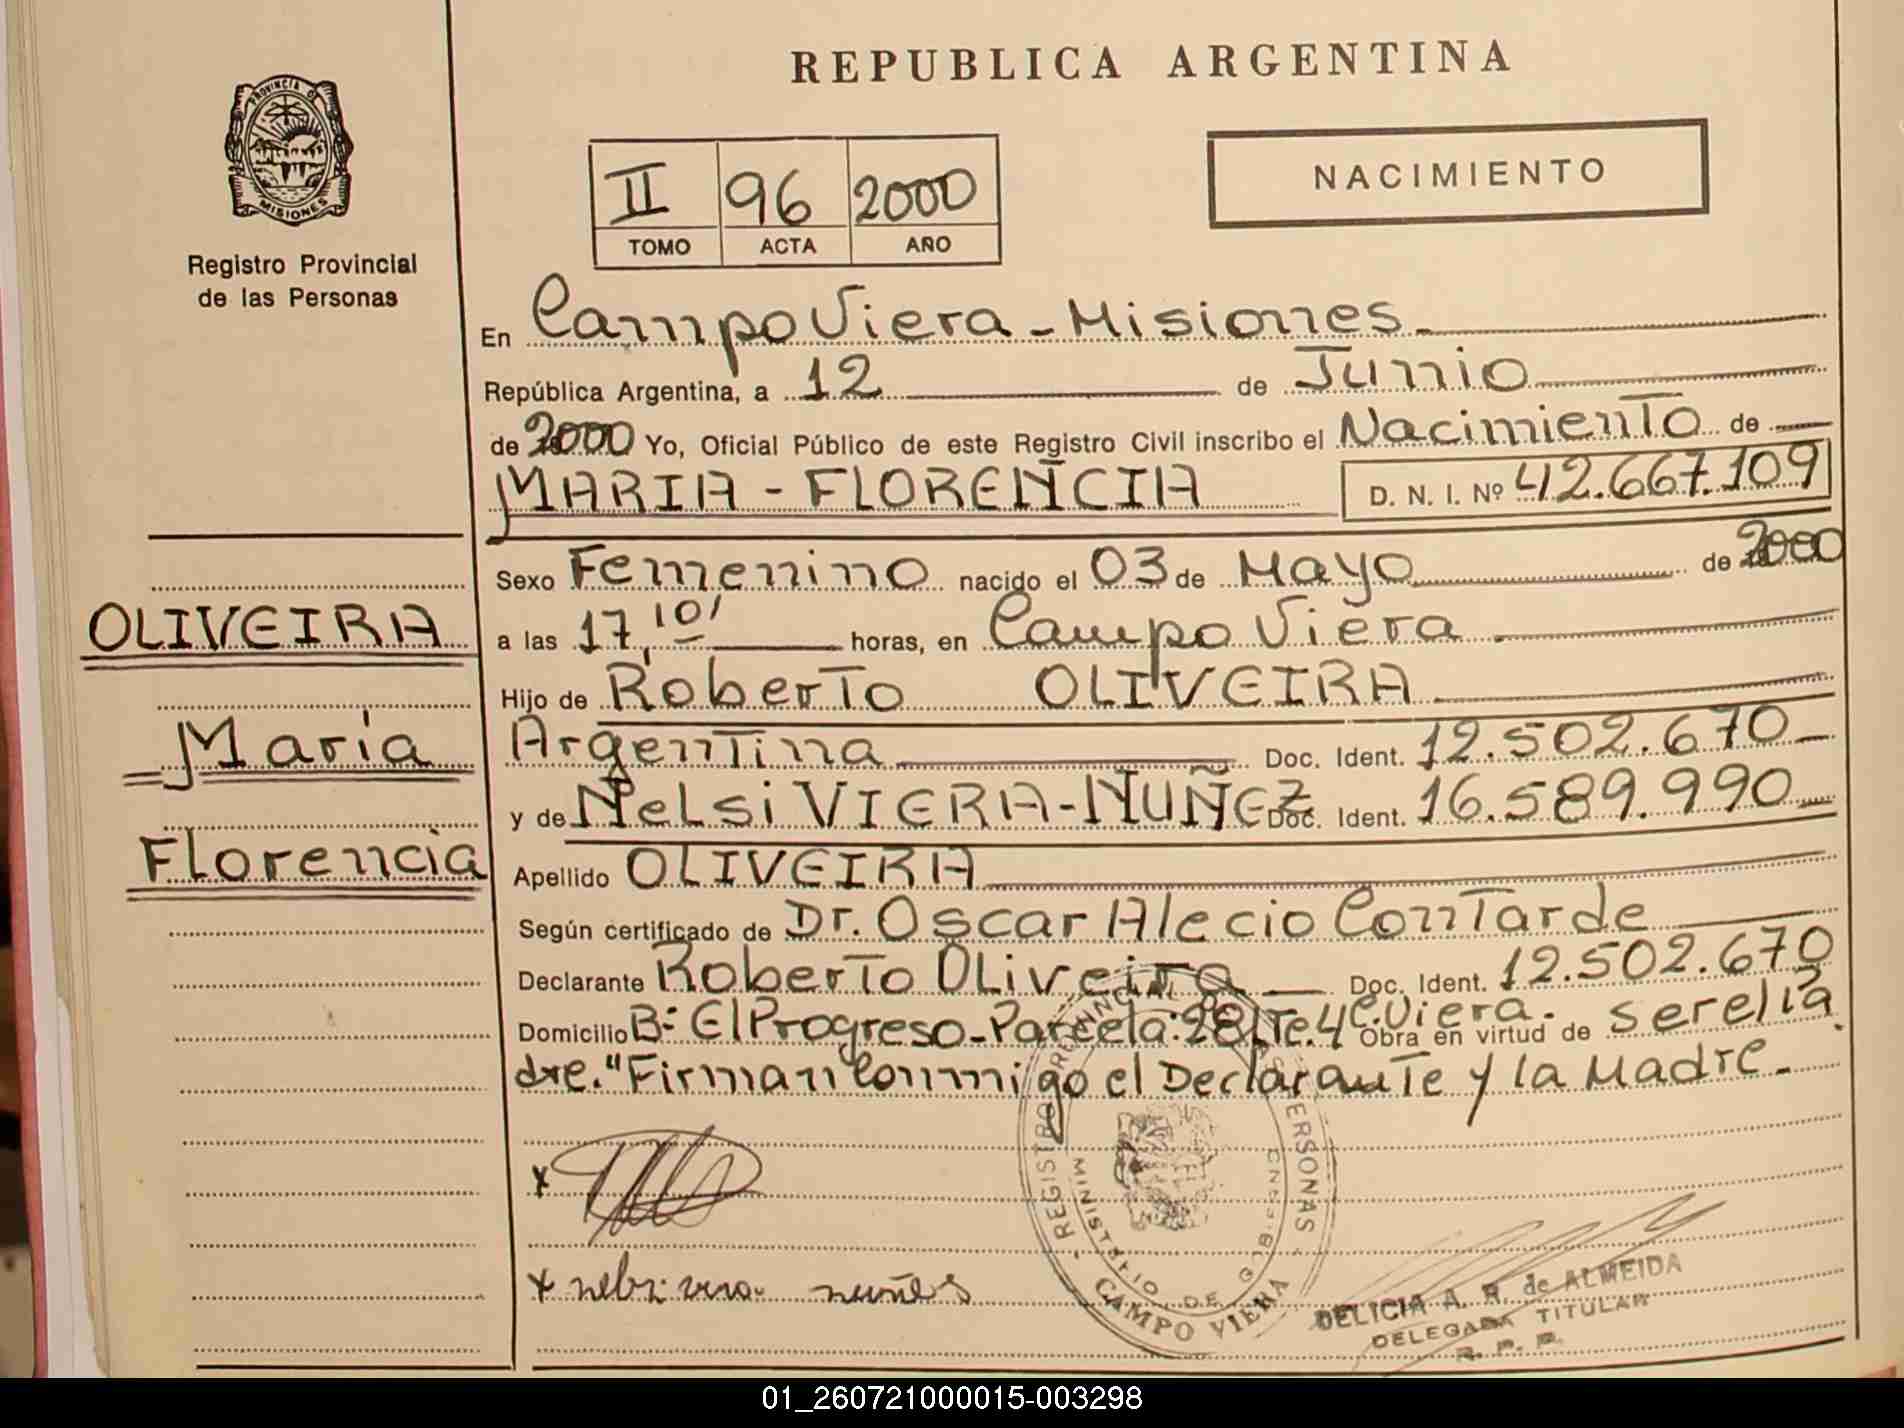 REPUBLICA ARGENTINA
PROVINCIA DE
MISIONES
Registro Provincial
de las Personas
II 96 2000
TOMO ACTA AÑO
NACIMIENTO
En Campo Viera - Misiones -
República Argentina, a 12 de Junio
de 2000 Yo, Oficial Público de este Registro Civil inscribo el Nacimiento de
MARIA - FLORENCIA D. N. I. Nº 42.667.109
Sexo Femenino nacido el 03 de Mayo de 2000
a las 17,10' horas, en Campo Viera
Hijo de Roberto OLIVEIRA
Argentina Doc. Ident. 12.502.670
y de Nelsi VIERA-NUÑEZ Doc. Ident. 16.589.990
Apellido OLIVEIRA
Según certificado de Dr. Oscar Alecio Contarde
Declarante Roberto OLiveira Doc. Ident. 12.502.670
Domicilio B: El Progreso - Parcela: 28 Lte. 4 C. Viera. Obra en virtud de ser el Pa
dre. "Firman Conmigo el Declarante y la Madre.
OLIVEIRA
María
Florencia
x
x nelzi viera nuñes
REGISTRO PROVINCIAL DE LAS PERSONAS
MINISTERIO DE GOBIERNO
CAMPO VIERA
DELICIA A. R. de ALMEIDA
DELEGADA TITULAR
R. P. P.
01_260721000015-003298